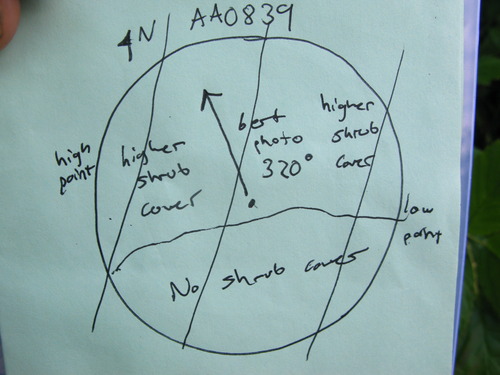 AA0839
N
high
point
higher
shrub
cover
best
photo
320°
higher
shrub
cover
low
point
No shrub cover